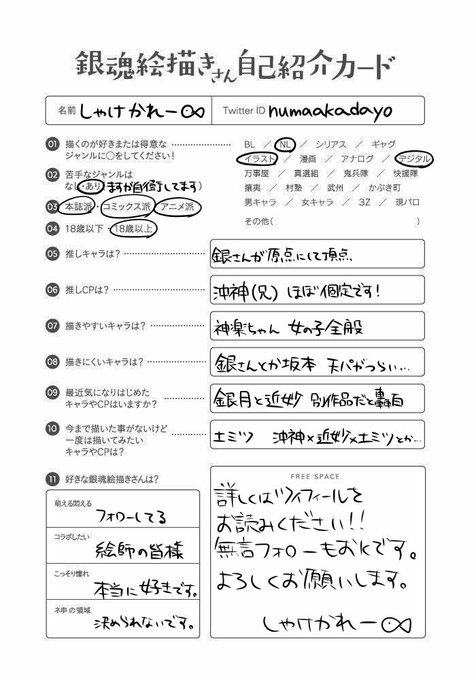 銀魂絵描きさん自己紹介カード
名前 しゃけかれー
Twitter ID numaakadayo
01 描くのが好きまたは得意なジャンルに○をしてください!
BL / NL / シリアス / ギャグ
イラスト / 漫画 / アナログ / デジタル
万事屋 / 真選組 / 鬼兵隊 / 快援隊
攘夷 / 村塾 / 武州 / かぶき町
男キャラ / 女キャラ / 3Z / 現パロ
その他( )
02 苦手なジャンルは
なし・あり( ますが自衛してます)
03 本誌派・コミックス派・アニメ派
04 18歳以下・18歳以上
05 推しキャラは?
銀さんが原点にして頂点
06 推しCPは?
沖神(兄) ほぼ固定です!
07 描きやすいキャラは?
神楽ちゃん 女の子全般
08 描きにくいキャラは?
銀さんとか坂本 天パがつらい…
09 最近気になりはじめた
キャラやCPはいますか?
銀月と近妙 別作品だと轟百
10 今まで描いた事がないけど
一度は描いてみたい
キャラやCPは?
土ミツ 沖神×近妙×土ミツとか…
11 好きな銀魂絵描きさんは?
萌える悶える
フォローしてる
コラボしたい
絵師の皆様
こっそり憧れ
本当に好きです。
ネ申の領域
決められないです。
FREE SPACE
詳しくはツイフィールを
お読みください!!
無言フォローもおkです。
よろしくお願いします。
しゃけかれー